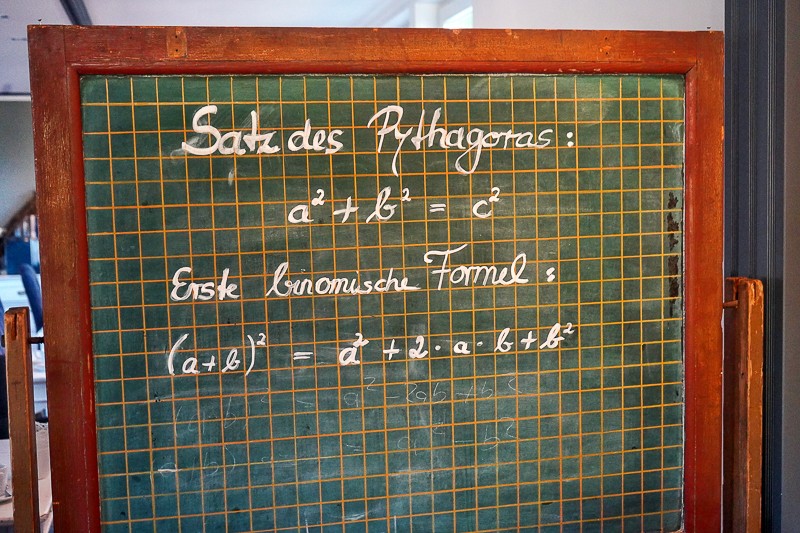 Satz des Pythagoras:
a² + b² = c²
Erste binomische Formel:
(a+b)² = a² + 2·a·b + b²
a² - 2ab + b²
a² - b²